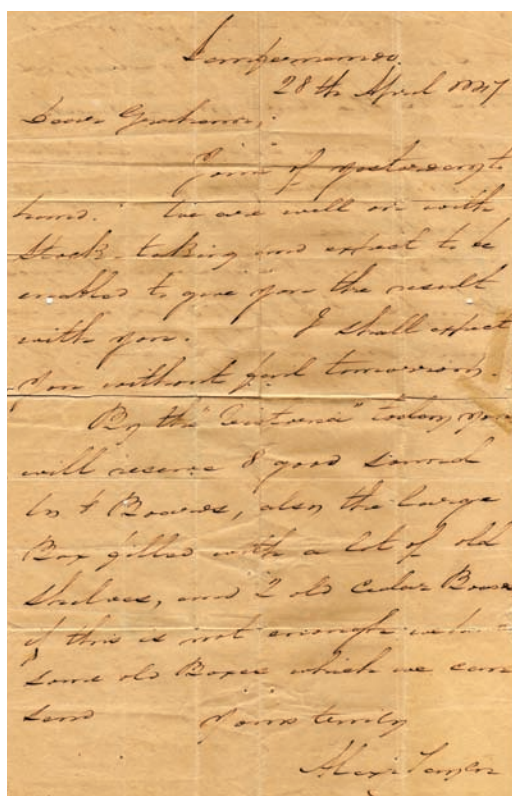 28th April
Dear Grahame,
Yours of yesterday to
hand. We are well on with
Stock-taking and expect to be
enabled to give you the result
with you. I shall expect
you without fail tomorrow.
By the " " today you
will receive 8 good sound
Boards, also the large
Box filled with a lot of old
Shelves, and 2 old cedar
if this is not enough we have
some old Boxes which we can
send Yours truly
Alex Taylor